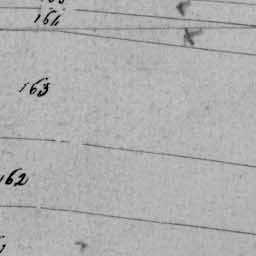 164
163
162